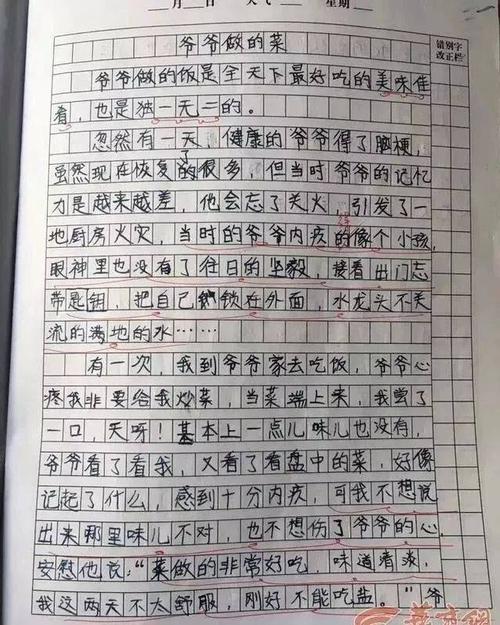 月 日 天气 星期
错别字
改正栏
爷爷做的菜
爷爷做的饭是全天下最好吃的美味佳
肴，也是独一无二的。
忽然有一天，健康的爷爷得了脑梗，
虽然现在恢复了的很多，但当时爷爷的记忆
力是越来越差，他会忘了关火，引发了一
地厨房火灾，当时的爷爷内疚的像个小孩，
眼神里也没有了往日的坚毅，接着出门忘
带钥匙，把自己锁在外面，水龙头不关
流的满地的水……
有一次，我到爷爷家去吃饭，爷爷心
疼我非要给我炒菜，当菜端上来，我尝了
一口，天呀！基本上一点儿味儿也没有，
爷爷看了看我，又看了看盘中的菜，好像
记起了什么，感到十分内疚，可我不想说
出来哪里味儿不对，也不想伤了爷爷的心，
安慰他说：“菜做的非常好吃，味道清淡，
我这两天不太舒服，刚好不能吃盐。”爷